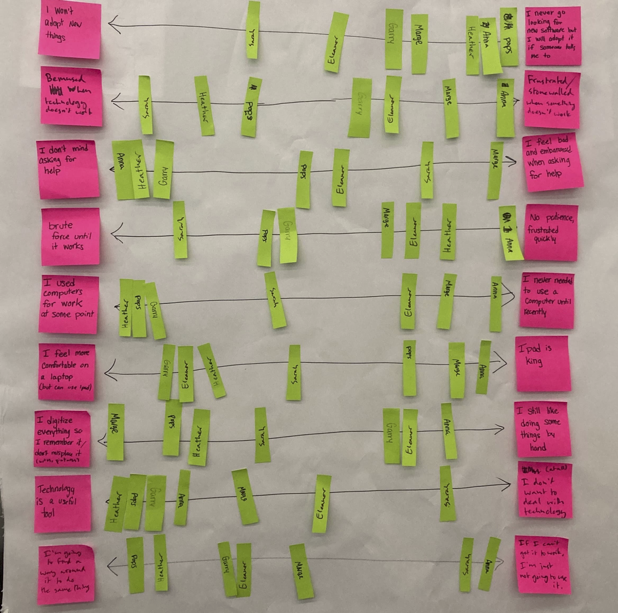 I won't
adopt new
things
Sarah
Eleanor
Garry
Marge
Heather
Anna
pops
I never go
looking for
new software but
I will adopt it
if someone tells
me to
Bemused
when
technology
doesn't work
Sarah
Heather
pops
Garry
Eleanor
Marge
Anna
Frustrated/
stonewalled
when something
doesn't work
I don't mind
asking for
help
Anna
Heather
Garry
pops
Eleanor
Sarah
Marge
I feel bad
and embarrassed
when asking
for help
brute
force until
it works
Sarah
pops
Garry
Marge
Eleanor
Heather
Anna
No patience,
frustrated
quickly
I used
computers
for work
at some point
Heather
pops
Garry
Sarah
Eleanor
Marge
Anna
I never needed
to use a
computer until
recently
I feel more
comfortable on
a laptop
(but can use ipad)
Garry
Eleanor
Heather
Sarah
pops
Marge
Anna
Ipad is
king
I digitize
everything so
I remember it/
Marge
pops
Heather
Sarah
Garry
Eleanor
Anna
I still like
doing some
things by
hand
Technology
is a useful
tool
Heather
pops
Garry
Anna
Marge
Eleanor
Sarah
I don't
want to
deal with
technology
I'm going
to find a
way around
it to do
the same thing
pops
Heather
Garry
Eleanor
Marge
Sarah
Anna
If I can't
get it to work,
I'm just
not going to
use it.